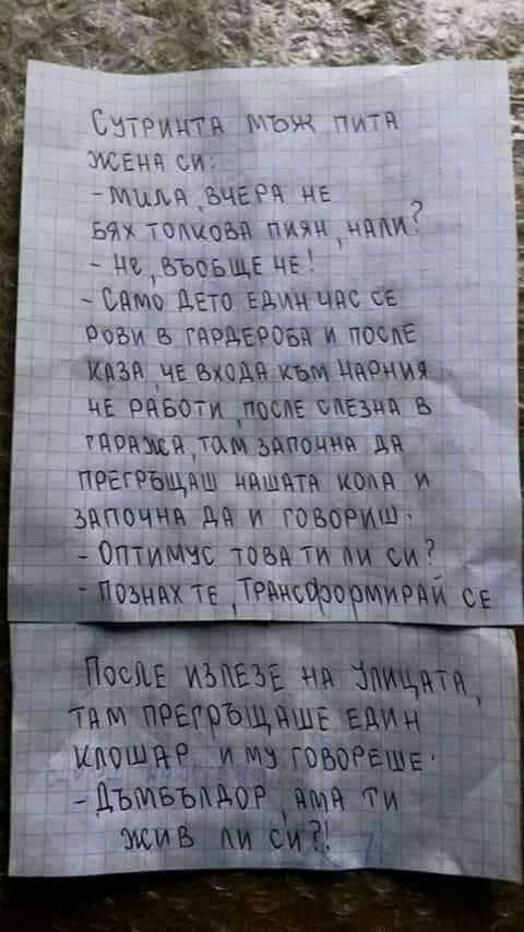 Сутринта мъж пита
жена си:
- Мила, вчера не
бях толкова пиян, нали?
- Не, въобще не!
- Само дето един час се
рови в гардероба и после
каза, че входа към Нарния
не работи, после слезна в
гаража, там започна да
прегръщаш нашата кола и
започна да и говориш.
- Оптимус това ти ли си?
- Познах те, Трансформирай се
После излезе на улицата,
там прегръщаше един
клошар и му говореше.
- Дъмбълдор, ама ти
жив ли си?!